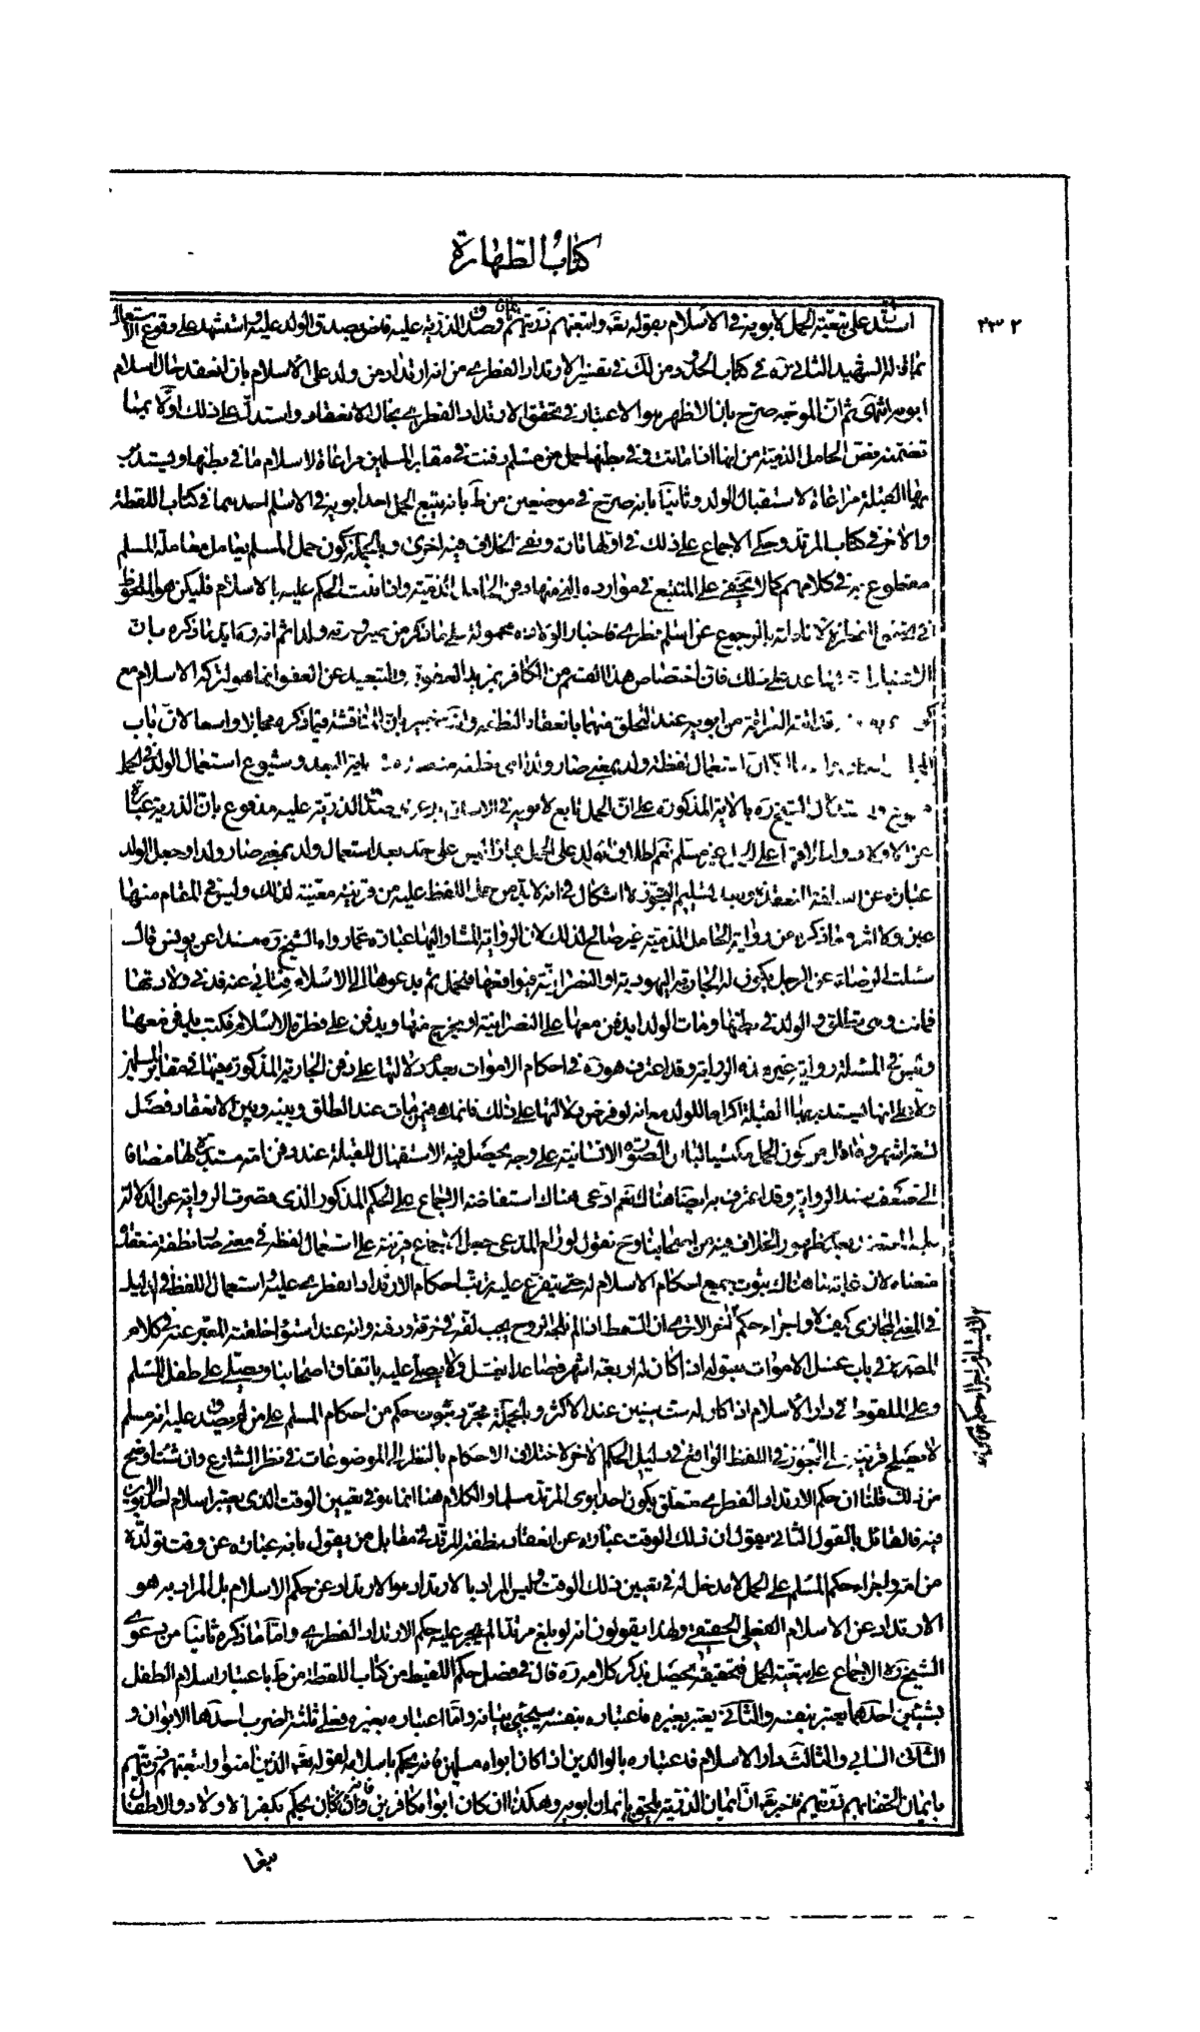 كتاب الطهارة
٢٣٢
استدل على تبعية الحمل لابويه في الاسلام بقوله تعالى واتبعتهم ذريتهم وصدق الذرية عليه فاض بصدق الولد عليه واستشهد على وقوع الاستعمال
بما قاله الشهيد الثاني ره في كتاب الحدود من لك في تفسير الارتداد الفطري من انه ارتداد من ولد على الاسلام بان انعقد حال اسلام
ابويه انتهى ثم ان الموجه صرح بان الاظهر هو الاعتبار في تحقق الارتداد الفطري بحال الانعقاد واستدل على ذلك اولا بما
تضمنه نص الحامل الذمية من انها اذا ماتت وفي بطنها حمل من مسلم دفنت في مقابر المسلمين مراعاة لاسلام ما في بطنها ويستدبر
بها القبلة مراعاة لاستقبال الولد وثانيا بانه صرح في موضعين من ط بانه يتبع الحمل احد ابويه في الاسلام احدهما في كتاب اللقطة
والاخر في كتاب المرتد وحكى الاجماع على ذلك في اولها تارة ونفى الخلاف فيه اخرى وبالجملة كون حمل المسلم يعامل معاملة المسلم
مقطوع به في كلامهم كما لا يخفى على المتتبع في موارده التي منها دفن الحامل الذمية واذا ثبت الحكم عليه بالاسلام فليكن هو الملحوظ
بالرجوع عن اسلام فطري فاخبار الولادة محمولة على ما ذكر من صيرورته ولدا ثم انه ره ايد ما ذكره بان
الاعتبار يساعد على ذلك فان اختصاص هذا القسم من الكافر بمزيد العقوبة والتبعيد عن العفو انما هو لتركه الاسلام مع
من ابويه عند التخلق منهما بانعقاد النطفة وانت خبير بان المناقشة فيما ذكره مجالا واسعا لان باب
استعمال لفظة ولد بمعنى صار ولدا اي خلقه منعقدة في غاية البعد وشيوع استعمال الولد في الحمل
استدلال الشيخ ره بالاية المذكورة على ان الحمل تابع لابويه في الاسلام صدق الذرية عليه مدفوع بان الذرية عبارة
عن الاولاد غير مسلم نعم اطلاق الولد على الحمل مجازا ليس على حد بعد استعمال ولد بمعنى صار ولدا وجعل الولد
عبارة عن النطفة المنعقدة وبعد تسليم التجوز لا اشكال في انه لابد من حمل اللفظ عليه من قرينة معينة لذلك وليس في المقام منها
عين ولا اثر وما ذكره من رواية الحامل الذمية غير صالح لذلك لان الرواية المشار اليها عبارة عما رواه الشيخ ره مسندا عن يونس قال
سئلت الرضا ع عن الرجل يكون له الجارية اليهودية او النصرانية فيواقعها فتحمل ثم يدعوها الى الاسلام فتأبى عنه فدنى ولادتها
فماتت وهي تطلق والولد في بطنها ومات الولد ايدفن معها على النصرانية او يخرج منها ويدفن على فطرة الاسلام فكتب يدفن معها
وليس في المسئلة رواية غير هذه الرواية وقد اعترف هو ره في احكام الاموات بعدم دلالتها على دفن الجارية المذكورة فيها في مقابر المسلمين
ولا على انها يستدبر بها القبلة اكراما للولد مع انه لو فرض دلالتها على ذلك فانما هي فيمن مات عند الطلق وبينه وبين الانعقاد فصل
تسعة اشهر ولا اقل من كون الحمل مكتسيا لباس الصورة الانسانية على وجه يحصل فيه الاستقبال للقبلة عند دفن امه مستدبرة لها مضافا
الى ضعف سند الرواية وقد اعترف به ايضا هناك نعم ادعى هناك استفاضة الاجماع على الحكم المذكور الذي هو صرف الرواية عن الدلالة
بظهور الخلاف فيه من اصحابنا وح نقول لو رام المدعى جعل الاجماع قرينة على استعمال لفظه في معنى صار نطفة منعقدة
منعناه لان غاية ما هناك ثبوت جميع احكام الاسلام له حتى يتفرع عليه ترتب احكام الارتداد الفطري عليه واستعمال اللفظ في الدليل
في المعنى المجازي كيف لا واجراء حكم نحو الاترى ان السقط اذا لم تلجه الروح يجب لفه في خرقة ودفنه وانه عند استواء خلقته المعبر عنه في كلام
المصره في باب غسل الاموات بقوله اذا كان له اربعة اشهر فصاعدا يغسل ولا يصلى عليه باتفاق اصحابنا ويصلى على طفل المسلم
وعلى الملقوط في دار الاسلام اذا كان له ست سنين عند الاكثر وبالجملة مجرد ثبوت حكم من احكام المسلم على من لم يصدق عليه انه مسلم
لا يصلح قرينة على التجوز في اللفظ الواقع في دليل الحكم الاخر لاختلاف الاحكام بالنظر الى الموضوعات في نظر الشارع وان شئت اوضح
من ذلك قلنا ان حكم الارتداد الفطري متعلق بكون احد ابوي المرتد مسلما والكلام هنا انما هو في تعيين الوقت الذي يعتبر اسلام احد الابوين
فيه فالقائل بالقول الثاني يقول ان ذلك الوقت عبارة عن انعقاد نطفة المرتد في مقابل من يقول بانه عبارة عن وقت تولده
من امه واجراء حكم المسلم على الحمل لا مدخل له في تعيين ذلك الوقت وليس المراد بالارتداد هو الارتداد عن حكم الاسلام بل المراد به هو
الارتداد عن الاسلام الفعلي الحقيقي ولهذا يقولون انه لو بلغ مرتدا لم يجر عليه حكم الارتداد الفطري واما ما ذكره ثانيا من دعوى
الشيخ ره الاجماع على تبعية الحمل فتحقيقه يحصل بذكر كلامه ره قال في فصل حكم اللقيط من كتاب اللقطة من ط باعتبار اسلام الطفل
بشيئين احدهما يعتبر بنفسه والثاني يعتبر بغيره فاعتباره بنفسه سيجيئ بيانه واما اعتباره بغيره فعلى ثلثة اضرب احدها الابوان و
الثاني السابي والثالث دار الاسلام فاعتباره بالوالدين اذا كان ابواه مسلمين فانه يحكم باسلامه لقوله تعالى الذين امنوا واتبعتهم ذريتهم
بايمان الحقنا بهم ذريتهم فاخبر تعالى ان ايمان الذرية يلحق بايمان ابويه وهكذا ان كان ابواه كافرين فانه يحكم بكفر الاولاد والاطفال
تبعا